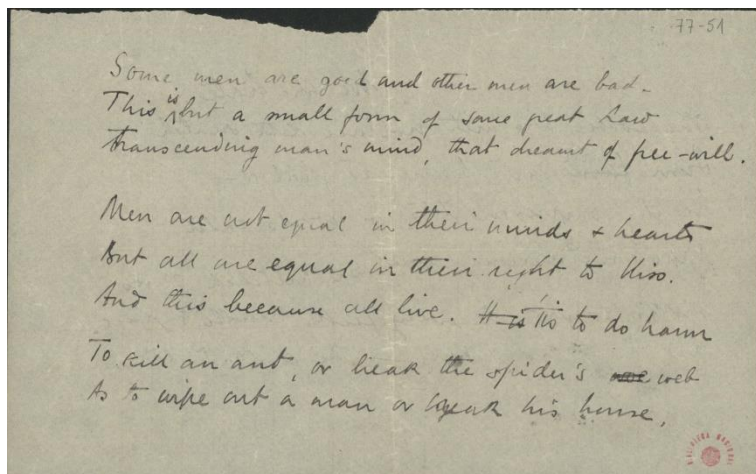 77-51
Some men are good and other men are bad.
This is but a small form of some great Law
Transcending man's mind, that dreamt of free-will.
Men are not equal in their minds + hearts
But all are equal in their right to bliss.
And this because all live. It is 'Tis to do harm
To kill an ant, or break the spider's web
As to wipe out a man or break his house.